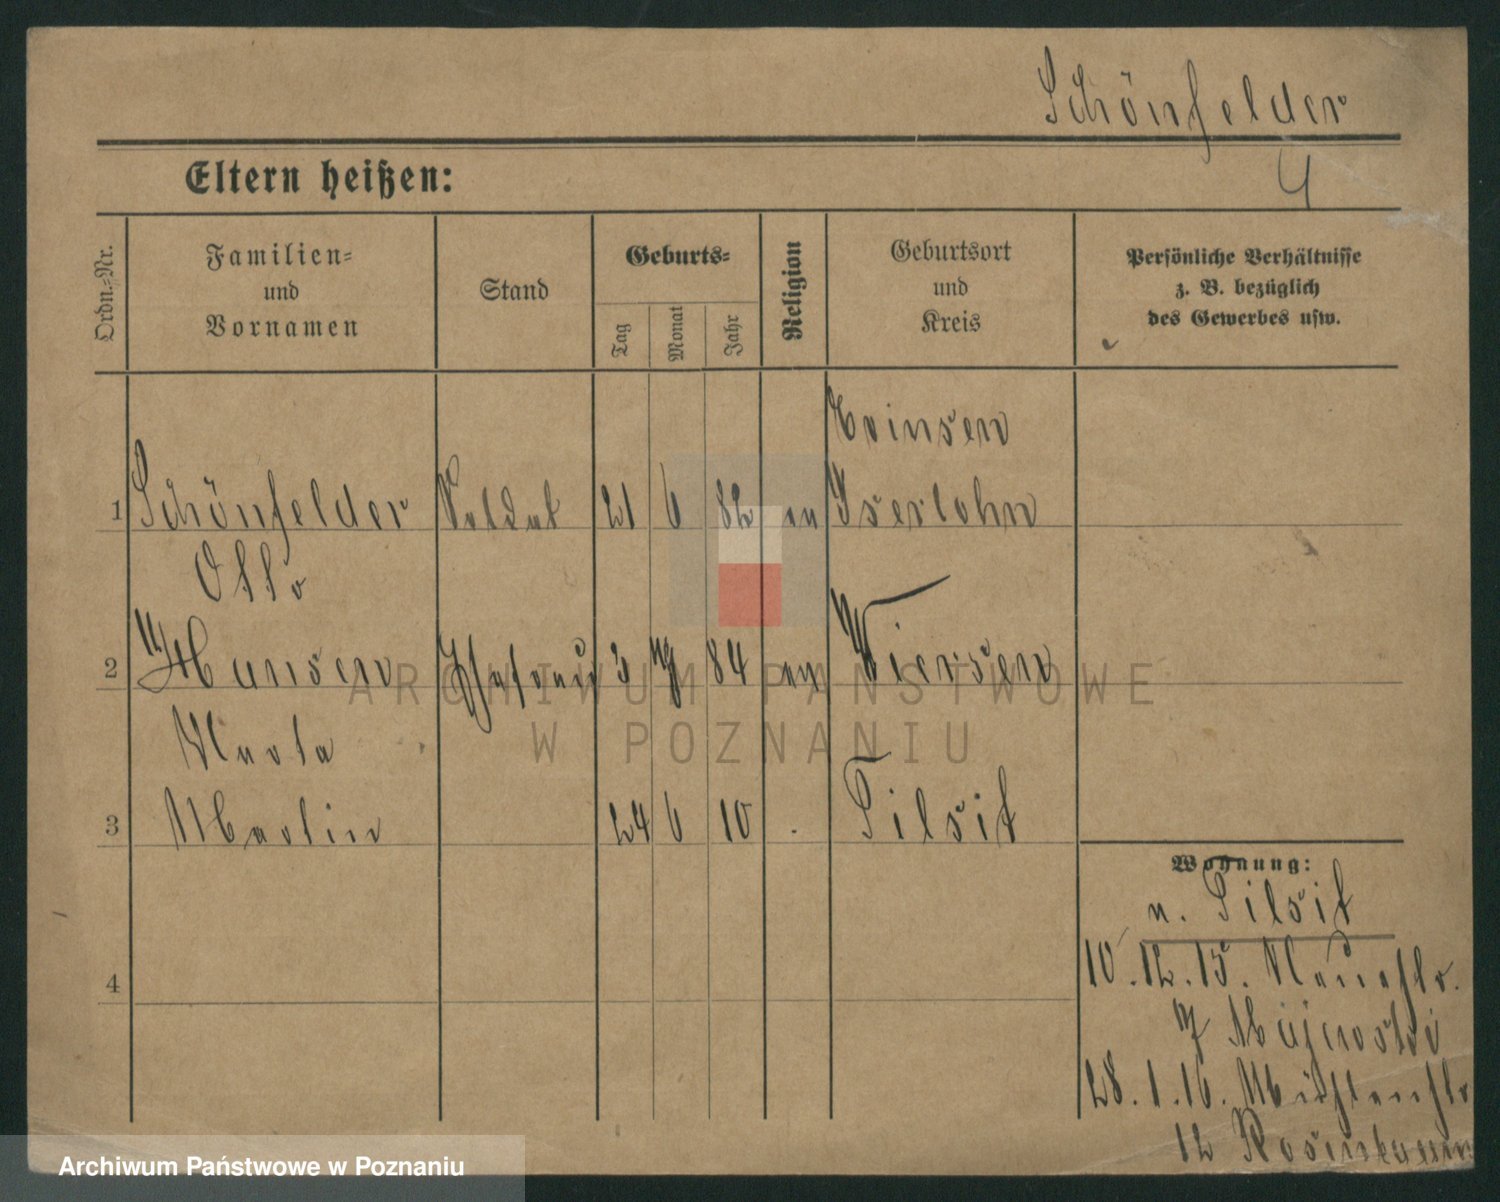 Schönfelder
4
Eltern heißen:
Ordn.=Nr.
Familien=
und
Vornamen
Stand
Geburts=
Tag
Monat
Jahr
Religion
Geburtsort
und
Kreis
Persönliche Verhältnisse
z. B. bezüglich
des Gewerbes usw.
1 Schönfelder Soldat 21 6 82 ev Iserlohn
Otto
2 Hansen Ehefrau 3 84 ev Viersen
Marta
3 Martin 24 6 10 Tilsit
4
Wohnung:
n. Tilsit
10.12.15.
7
28.1.16.
12
ARCHIWUM PAŃSTWOWE
W POZNANIU
Archiwum Państwowe w Poznaniu